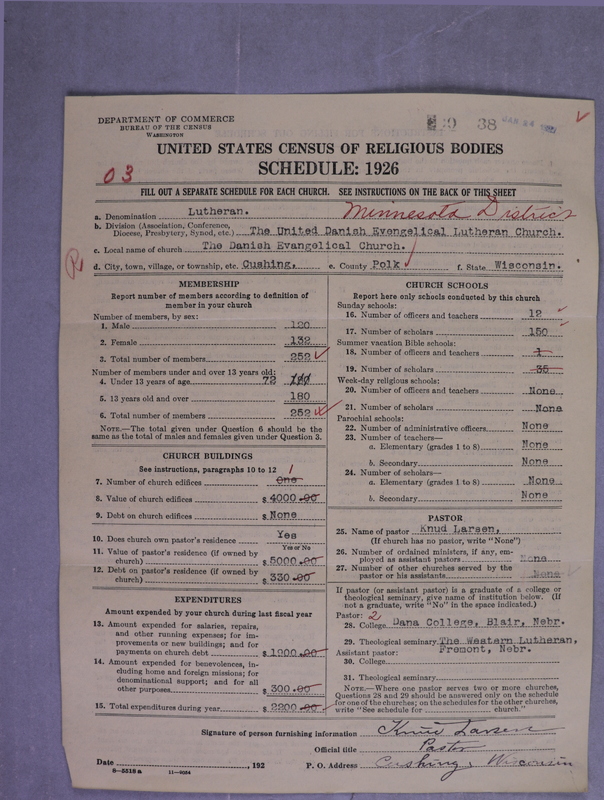 DEPARTMENT OF COMMERCE
BUREAU OF THE CENSUS
WASHINGTON
38
UNITED STATES CENSUS OF RELIGIOUS BODIES
SCHEDULE: 1926
03
FILL OUT A SEPARATE SCHEDULE FOR EACH CHURCH. SEE INSTRUCTIONS ON THE BACK OF THIS SHEET
a. Denomination Lutheran. Minnesota District
b. Division (Association, Conference, Diocese, Presbytery, Synod, etc.) The United Danish Evengelical Lutheran Church.
c. Local name of church The Danish Evangelical Church.
R
d. City, town, village, or township, etc. Cushing, e. County Polk f. State Wisconsin.
MEMBERSHIP
Report number of members according to definition of
member in your church
Number of members, by sex:
1. Male 120
2. Female 132
3. Total number of members 252
Number of members under and over 13 years old:
4. Under 13 years of age 72
5. 13 years old and over 180
6. Total number of members 252
NOTE.—The total given under Question 6 should be
same as the total of males and females given under Question 3.
CHURCH BUILDINGS
See instructions, paragraphs 10 to 12
7. Number of church edifices One 1
8. Value of church edifices $ 4000.00
9. Debt on church edifices $ None
10. Does church own pastor's residence Yes
Yes or No
11. Value of pastor's residence (if owned by
church) $ 5000.00
12. Debt on pastor's residence (if owned by
church) $ 330.00
EXPENDITURES
Amount expended by your church during last fiscal year
13. Amount expended for salaries, repairs,
and other running expenses; for im-
provements or new buildings; and for
payments on church debt $ 1900.00
14. Amount expended for benevolences, in-
cluding home and foreign missions; for
denominational support; and for all
other purposes $ 300.00
15. Total expenditures during year $ 2200.00
CHURCH SCHOOLS
Report here only schools conducted by this church
Sunday schools:
16. Number of officers and teachers 12
17. Number of scholars 150
Summer vacation Bible schools:
18. Number of officers and teachers 1
19. Number of scholars 35
Week-day religious schools:
20. Number of officers and teachers None
21. Number of scholars None
Parochial schools:
22. Number of administrative officers None
23. Number of teachers—
a. Elementary (grades 1 to 8) None
b. Secondary None
24. Number of scholars—
a. Elementary (grades 1 to 8) None
b. Secondary None
PASTOR
25. Name of pastor Knud Larsen,
(If church has no pastor, write "None")
26. Number of ordained ministers, if any, em-
ployed as assistant pastors None
27. Number of other churches served by the
pastor or his assistants None
If pastor (or assistant pastor) is a graduate of a college or
theological seminary, give name of institution below. (If
not a graduate, write "No" in the space indicated.)
Pastor: 2
28. College Dana College, Blair, Nebr.
29. Theological seminary The Western Lutheran,
Assistant pastor: Fremont, Nebr.
30. College
31. Theological seminary
NOTE.—Where one pastor serves two or more churches,
Questions 28 and 29 should be answered only on the schedule
for one of the churches; on the schedules for the other churches,
write "See schedule for church."
Signature of person furnishing information Knud Larsen
Official title Pastor
Date , 192 P. O. Address Cushing, Wisconsin
8—5518a 11—9034